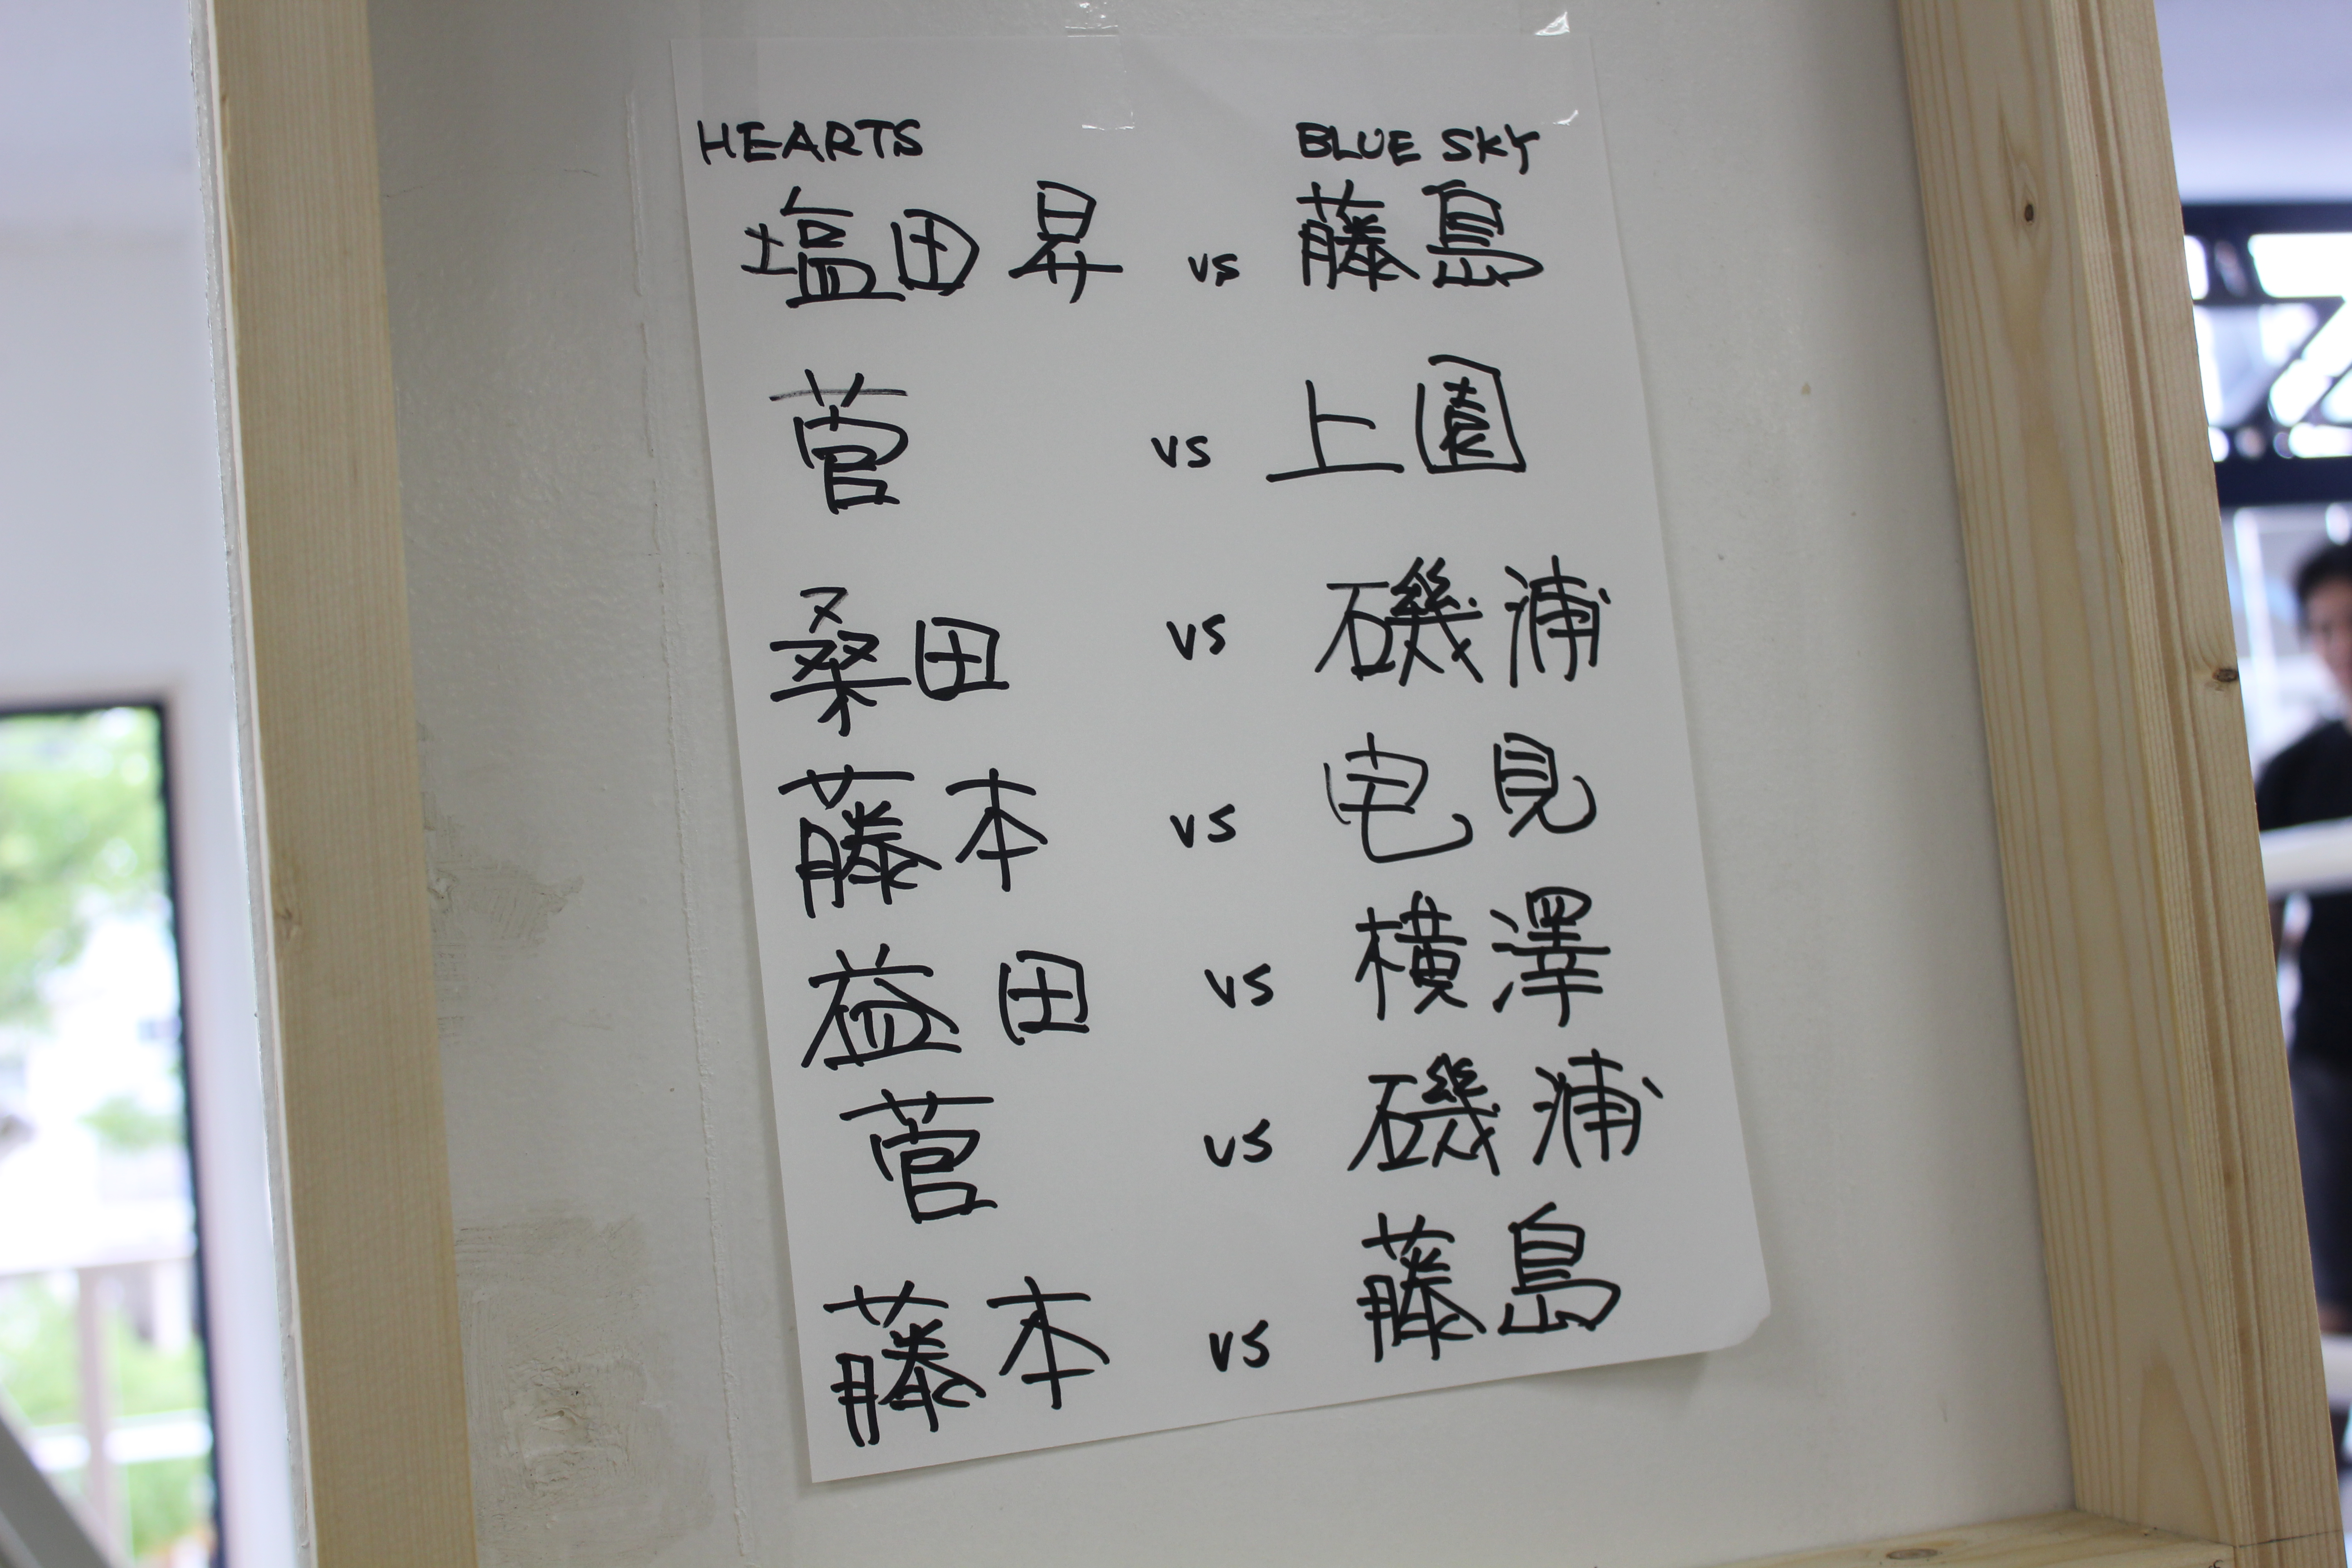 HEARTS BLUE SKY
塩田昇 vs 藤島
菅 vs 上園
桑田 vs 磯浦
藤本 vs 宅見
益田 vs 横澤
菅 vs 磯浦
藤本 vs 藤島